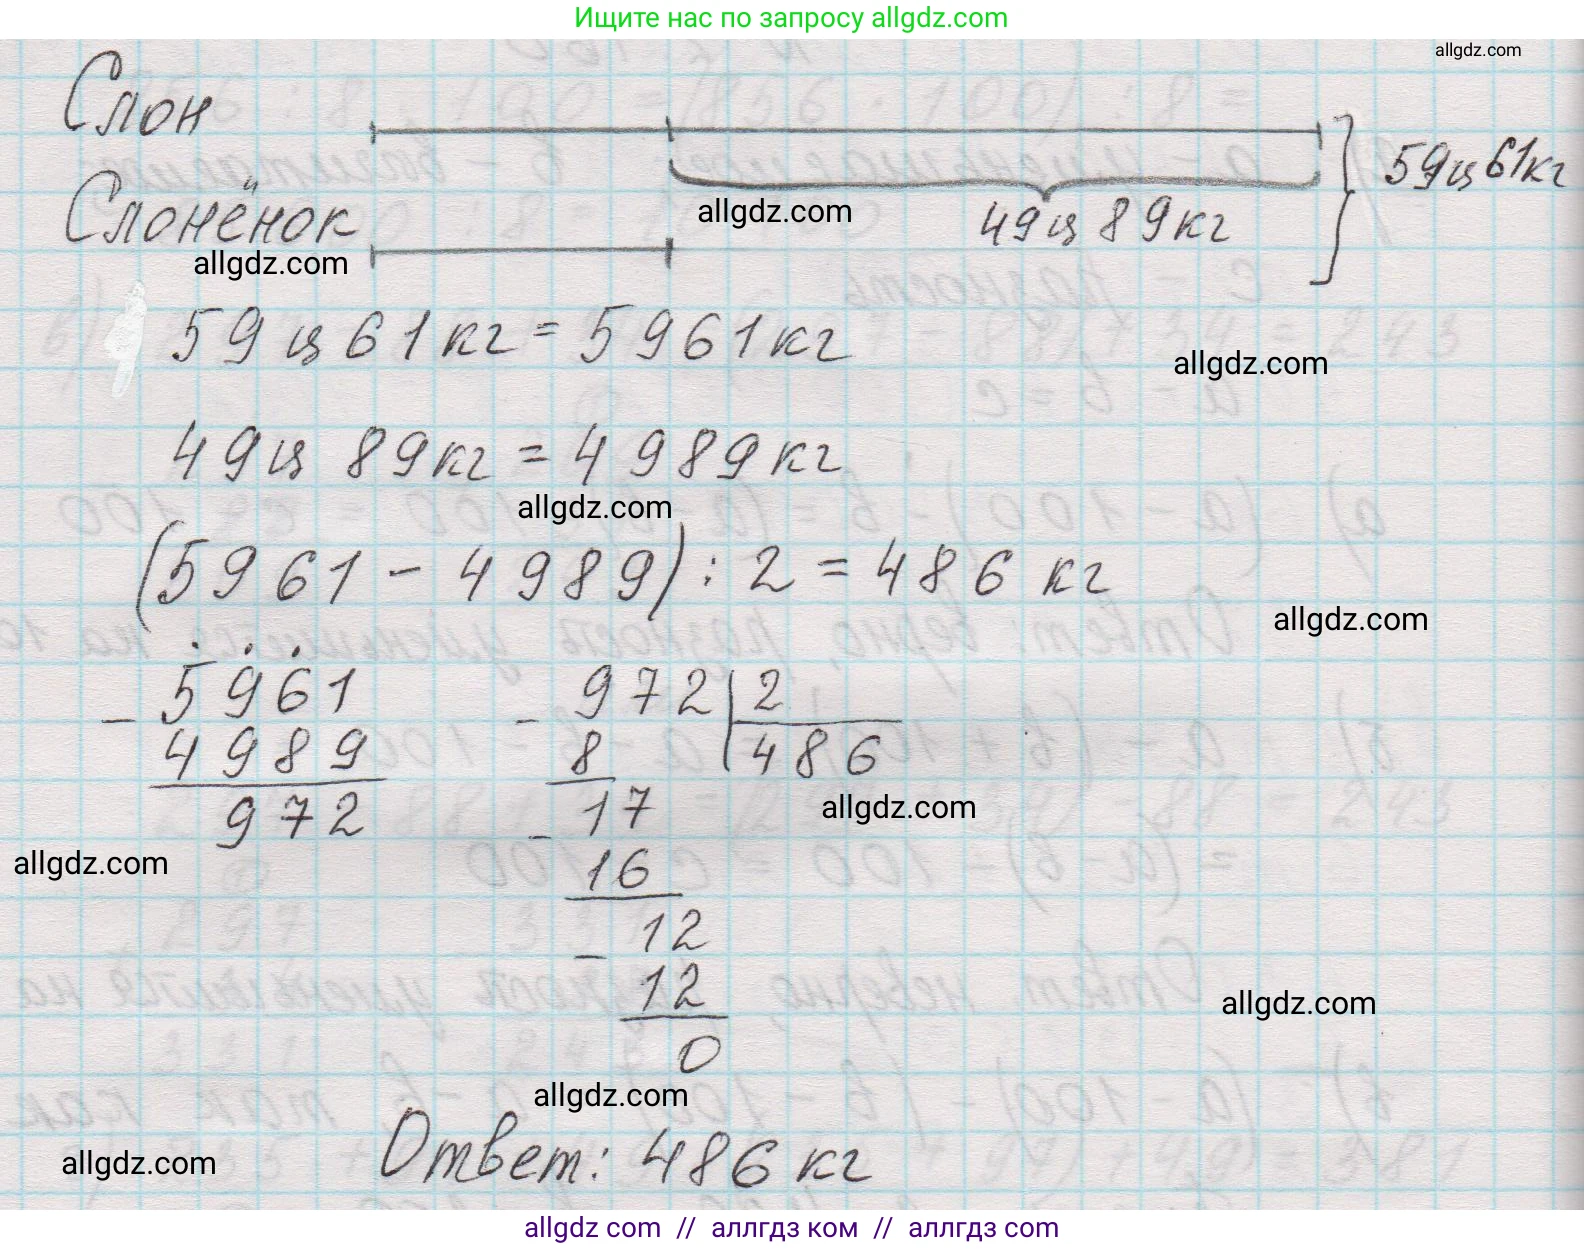 Ищите нас по запросу allgdz.com
allgdz.com
Слон
59ц 61кг
Слонёнок
allgdz.com
49ц 89кг
allgdz.com
59ц 61кг = 5961кг
allgdz.com
49ц 89кг = 4989кг
allgdz.com
(5961 - 4989) : 2 = 486 кг
allgdz.com
- 5961
4989
972
- 972 2
8 486
- 17
16
- 12
12
0
allgdz.com
allgdz.com
allgdz.com
allgdz.com
Ответ: 486 кг
allgdz.com
allgdz.com // аллгдз ком // аллгдз com